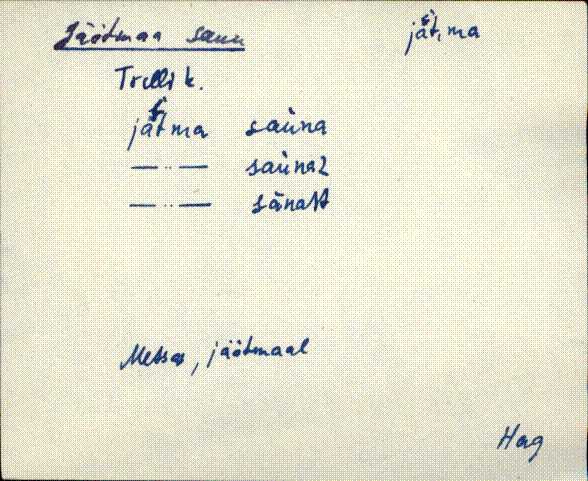 Jäätmaa saun
jäť,ma
Trelli k.
jäťma saùna
— ·· — saùna2
— ·· — sä̀nast
Metsas, jäätmaal
Hag